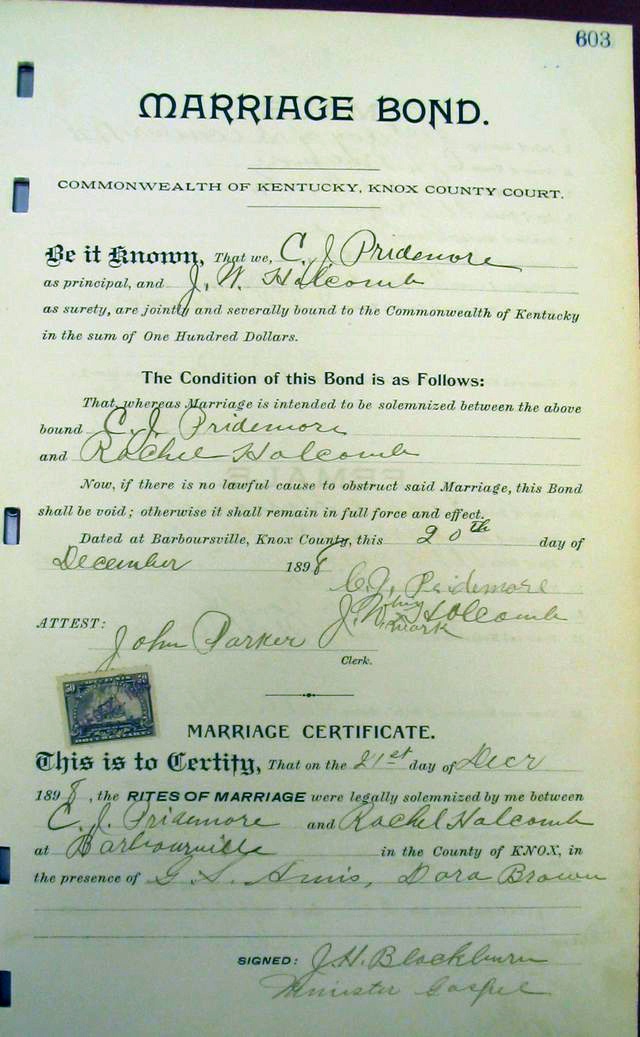 603
MARRIAGE BOND.
COMMONWEALTH OF KENTUCKY, KNOX COUNTY COURT.
Be it Known, That we, C. J. Pridemore
as principal, and J. W. Holcomb
as surety, are jointly and severally bound to the Commonwealth of Kentucky
in the sum of One Hundred Dollars.
The Condition of this Bond is as Follows:
That, whereas Marriage is intended to be solemnized between the above
bound C. J. Pridemore
and Rachel Holcomb
Now, if there is no lawful cause to obstruct said Marriage, this Bond
shall be void; otherwise it shall remain in full force and effect.
Dated at Barboursville, Knox County, this 20th day of
December 1898
C. J. Pridemore
J. W. his Holcomb
mark
ATTEST:
John Parker
Clerk.
50 50
MARRIAGE CERTIFICATE.
This is to Certify, That on the 21st day of Decr
1898, the RITES OF MARRIAGE were legally solemnized by me between
C. J. Pridemore and Rachel Holcomb
at Barbourville in the County of KNOX, in
the presence of G. S. Amis, Dora Brown
SIGNED: J. H. Blackburn
Minister Gospel